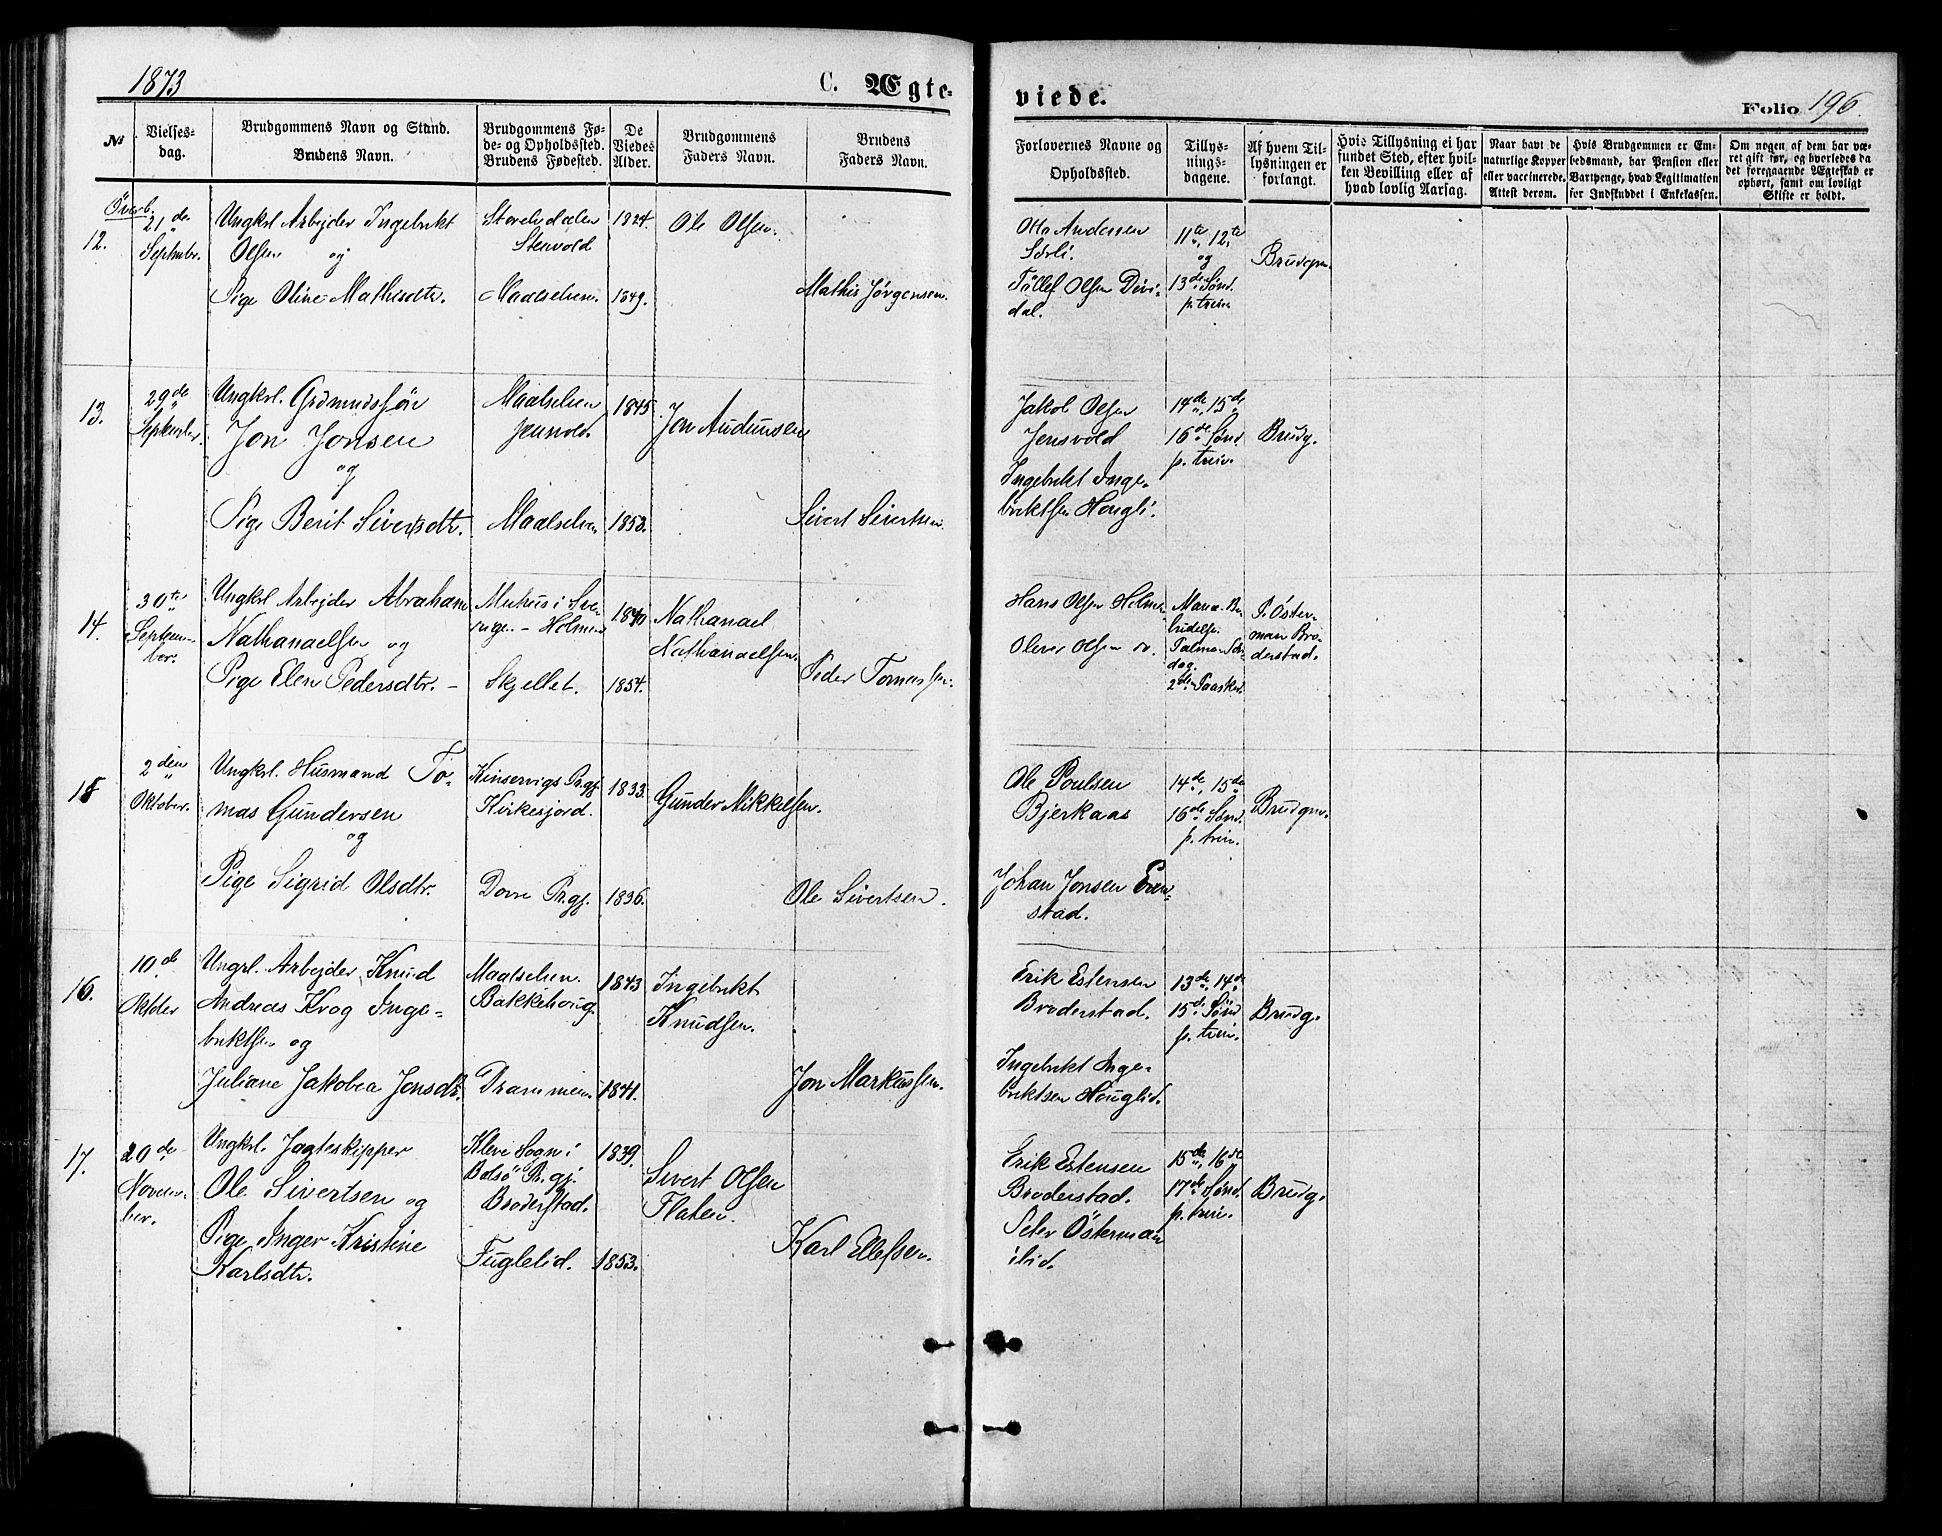 1873
C. Ægte-
viede.
Folio 196.
No
Vielses-
dag.
Brudgommens Navn og Stand.
Brudens Navn.
Brudgommens Fø-
de- og Opholdssted.
Brudens Fødested.
De
Viedes
Alder.
Brudgommens
Faders Navn.
Brudens
Faders Navn.
Forlovernes Navne og
Opholdsted.
Tillys-
nings-
dagene.
Af hvem Til-
lysningen er
forlangt.
Hvis Tillysning ei har
fundet Sted, efter hvil-
ken Bevilling eller af
hvad lovlig Aarsag.
Naar havt de
naturlige Kopper
eller vaccinerede.
Attest derom.
Hvis Brudgommen er Em-
bedsmand, har Pension eller
Vartpenge, hvad Legitimation
for Indskuddet i Enkekassen.
Om nogen af dem har væ-
ret gift før, og hvorledes da
det foregaaende Ægteskab er
ophørt, samt om lovligt
Skifte er holdt.
Överb.
12.
21de
September.
Ungkrl Arbejder Ingebrikt
Olsen og
Pige Oline Mathisdtr.
Stenvold
Maalselven.
1824.
1849.
Ole Olsen.
Mathis Jørgensen.
Otto Andersen
Sörli.
Tøllef Olsen Divi-
dal.
11te, 12te
og
13de Sønd.
p. trin
Brudgm.
13.
29de
September.
Ungkrl. Grdmandssön
Jon Jonsen
og
Pige Berit Sivertsdtr.
Maalselven
Jensvold
Maalselven
1845.
1853.
Jon Audunsen
Sivert Sivertsen.
Jakob Olsen
Jensvold
Ingebrikt Inge-
briktsen Hougli.
14de, 15de
16de Sønd.
p. trin.
Brudg.
14.
30te
Septem-
ber.
Ungkrl Arbejder Abraham
Nathanaelsen og
Pige Elen Pedersdtr. -
i Sve-
rige. - Holmen
Skjellet.
1840
1854.
Nathanael
Nathanaelsen.
Peder Tomassen.
Hans Olsen Holmen
Oliver Olsen
Maria Be-
budelse.
Palme Søn-
dag.
2den Paaskd.
P. Öster-
man Bro-
derstad.
15
2den
Oktober.
Ungkrl. Husmand To-
mas Gundersen
og
Pige Sigrid Olsdtr.
Kinservigs Prgj.
Kirkesjord.
Dovre Prgj.
1833.
1836.
Gunder Mikkelsen.
Ole Sivertsen.
Ole Poulsen
Bjerkaas
Johan Jonsen Even-
stad.
14de, 15de
16de Sønd.
p. trin.
Brudgm.
16.
10de
Oktober
Ungrl. Arbejder Knud
Andreas Krog Inge-
briktsen og
Juliane Jakobea Jonsdtr.
Maalselven.
Bakkehoug.
Drammen
1843
1841.
Ingebrikt
Knudsen.
Jon Markussen.
Erik Estensen
Broderstad.
Ingebrikt Inge-
briktsen Houglid.
13de, 14de
15de Sønd
p. trin.
Brudg.
17.
20de
Novem-
ber.
Ungkrl. Jagteskipper
Ole Sivertsen og
Pige Inger Kristine
Karlsdtr.
Kleve Sogn i
Bolsö Prgj.
Broderstad.
Fuglelid.
1839.
1853.
Sivert Olsen
Flaten.
Karl Ellefsen.
Erik Estensen
Broderstad.
Peter Österman
ilid.
15de, 16de
17de Sønd.
p. trin.
Brudg.